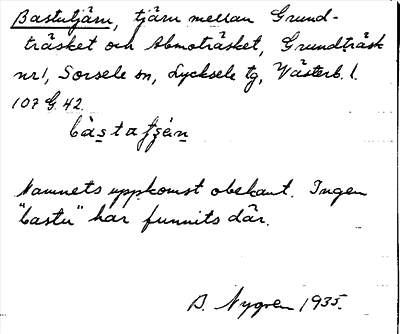 Bastutjärn, tjärn mellan Grund-
träsket och Abmoträsket, Grundträsk
nr 1, Sorsele sn, Lycksele tg, Västerb. l.
107 G 42.
Namnets uppkomst obekant. Ingen
"bastu" har funnits där.
B. Nygren 1935.